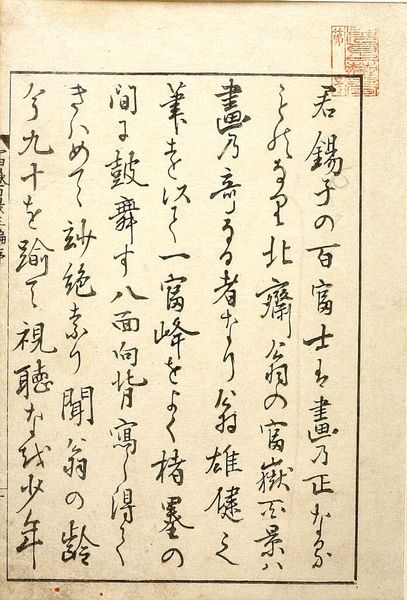 君錫子の百富士は畫乃正なる
ものなり北齋翁の富嶽百景ハ
畫乃奇なる者なり翁雄健之
筆を以て一富峰をよく楮墨の
間に鼓舞す八面向背寫し得て
きハめて妙絶なり聞翁の齢
今九十を踰て視聴なほ少年